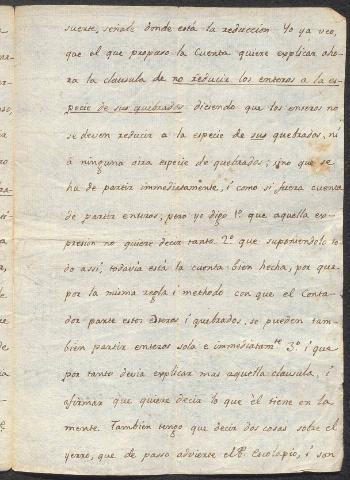 suerte, señale donde está la reduccion Yo ya veo,
que el que propuso la Cuenta quiere explicar aho-
ra la clausula de no reducir los enteros a la es-
pecie de sus quebrados diciendo que los enteros no
se deven reducir a la especie de sus quebrados, ni
à ninguna otra especie de quebrados; sino que se
ha de partir immediatamente, i como si fuera cuenta
de partir enteros; pero yo digo 1.º que aquella ex-
presion no quiere decir tanto. 2.º que suponiendolo to-
do assi, todavia està la cuenta bien hecha, por que
por la misma regla i methodo con que el Conta-
dor parte estos Enteros i quebrados, se pueden tam-
bien partir enteros solo e immediatam.te 3.º i que
por tanto devia explicar mas aquella clausula, i
afirmar que quiere decir lo que èl tiene en la
mente. Tambien tengo que decir dos cosas sobre el
yerro, que de passo advierte el P. Escolapio, i son